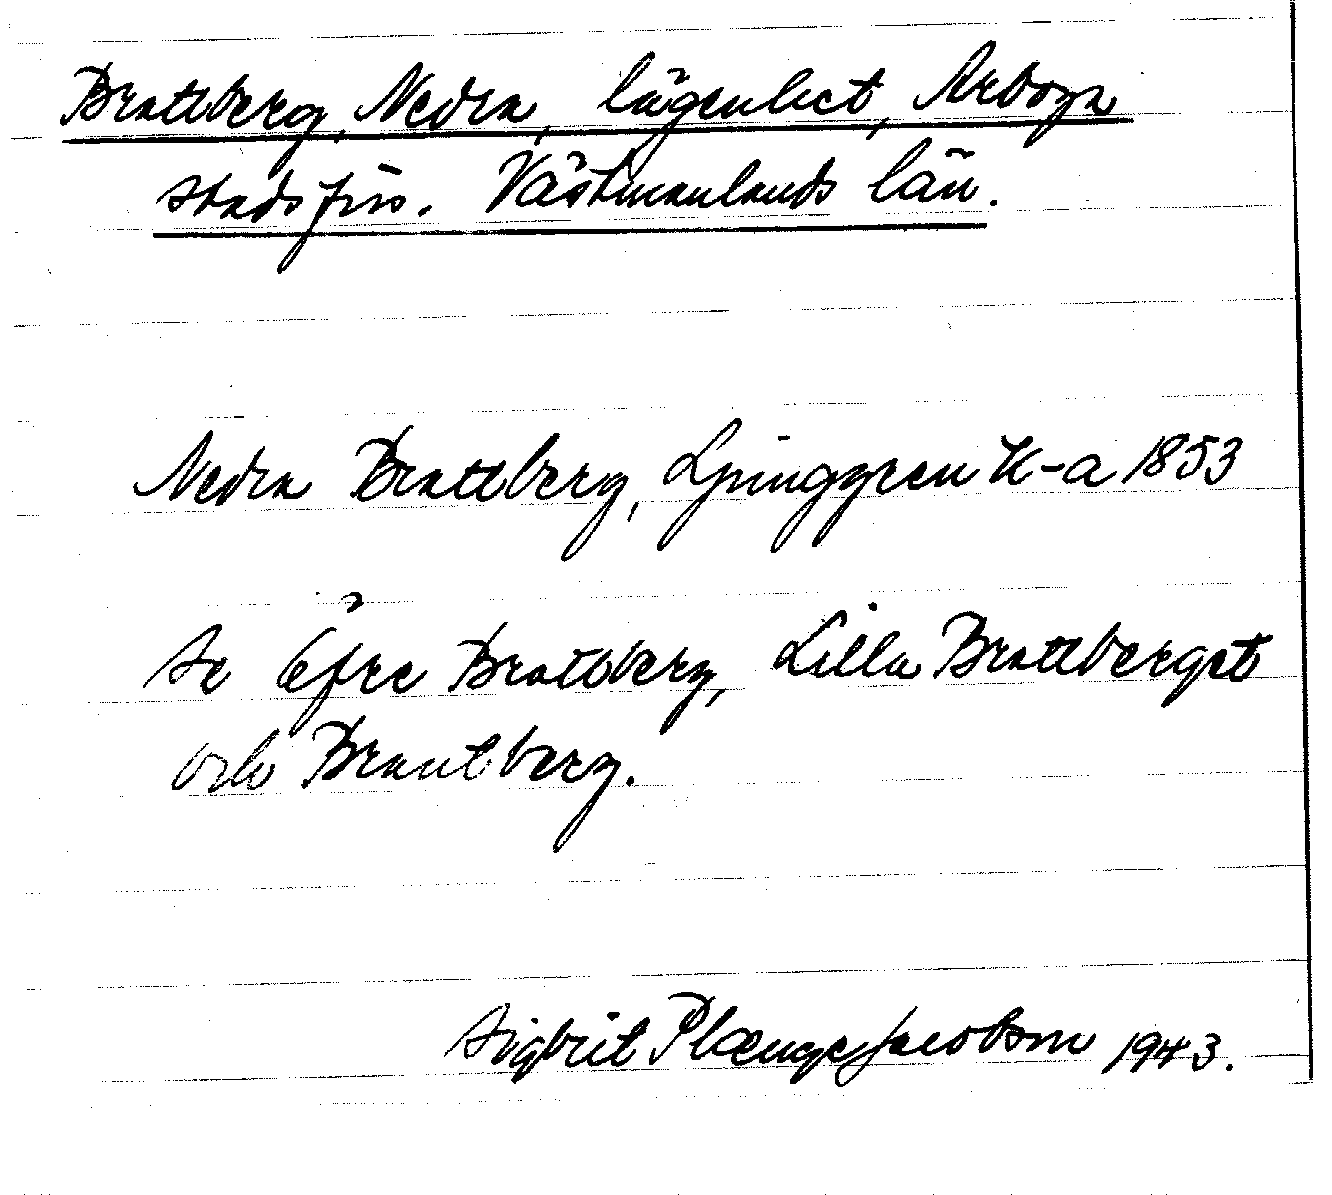 Bratteberg, Nedra, lägenhet, Arboga
stadsförs. Västmanlands län.
Nedra Bratteberg, Ljunggren K-a 1853
Se Öfre Bratteberg, Lilla Brattberget
och Brantberg.
Sigbrit Plænge Jacobson 1943.